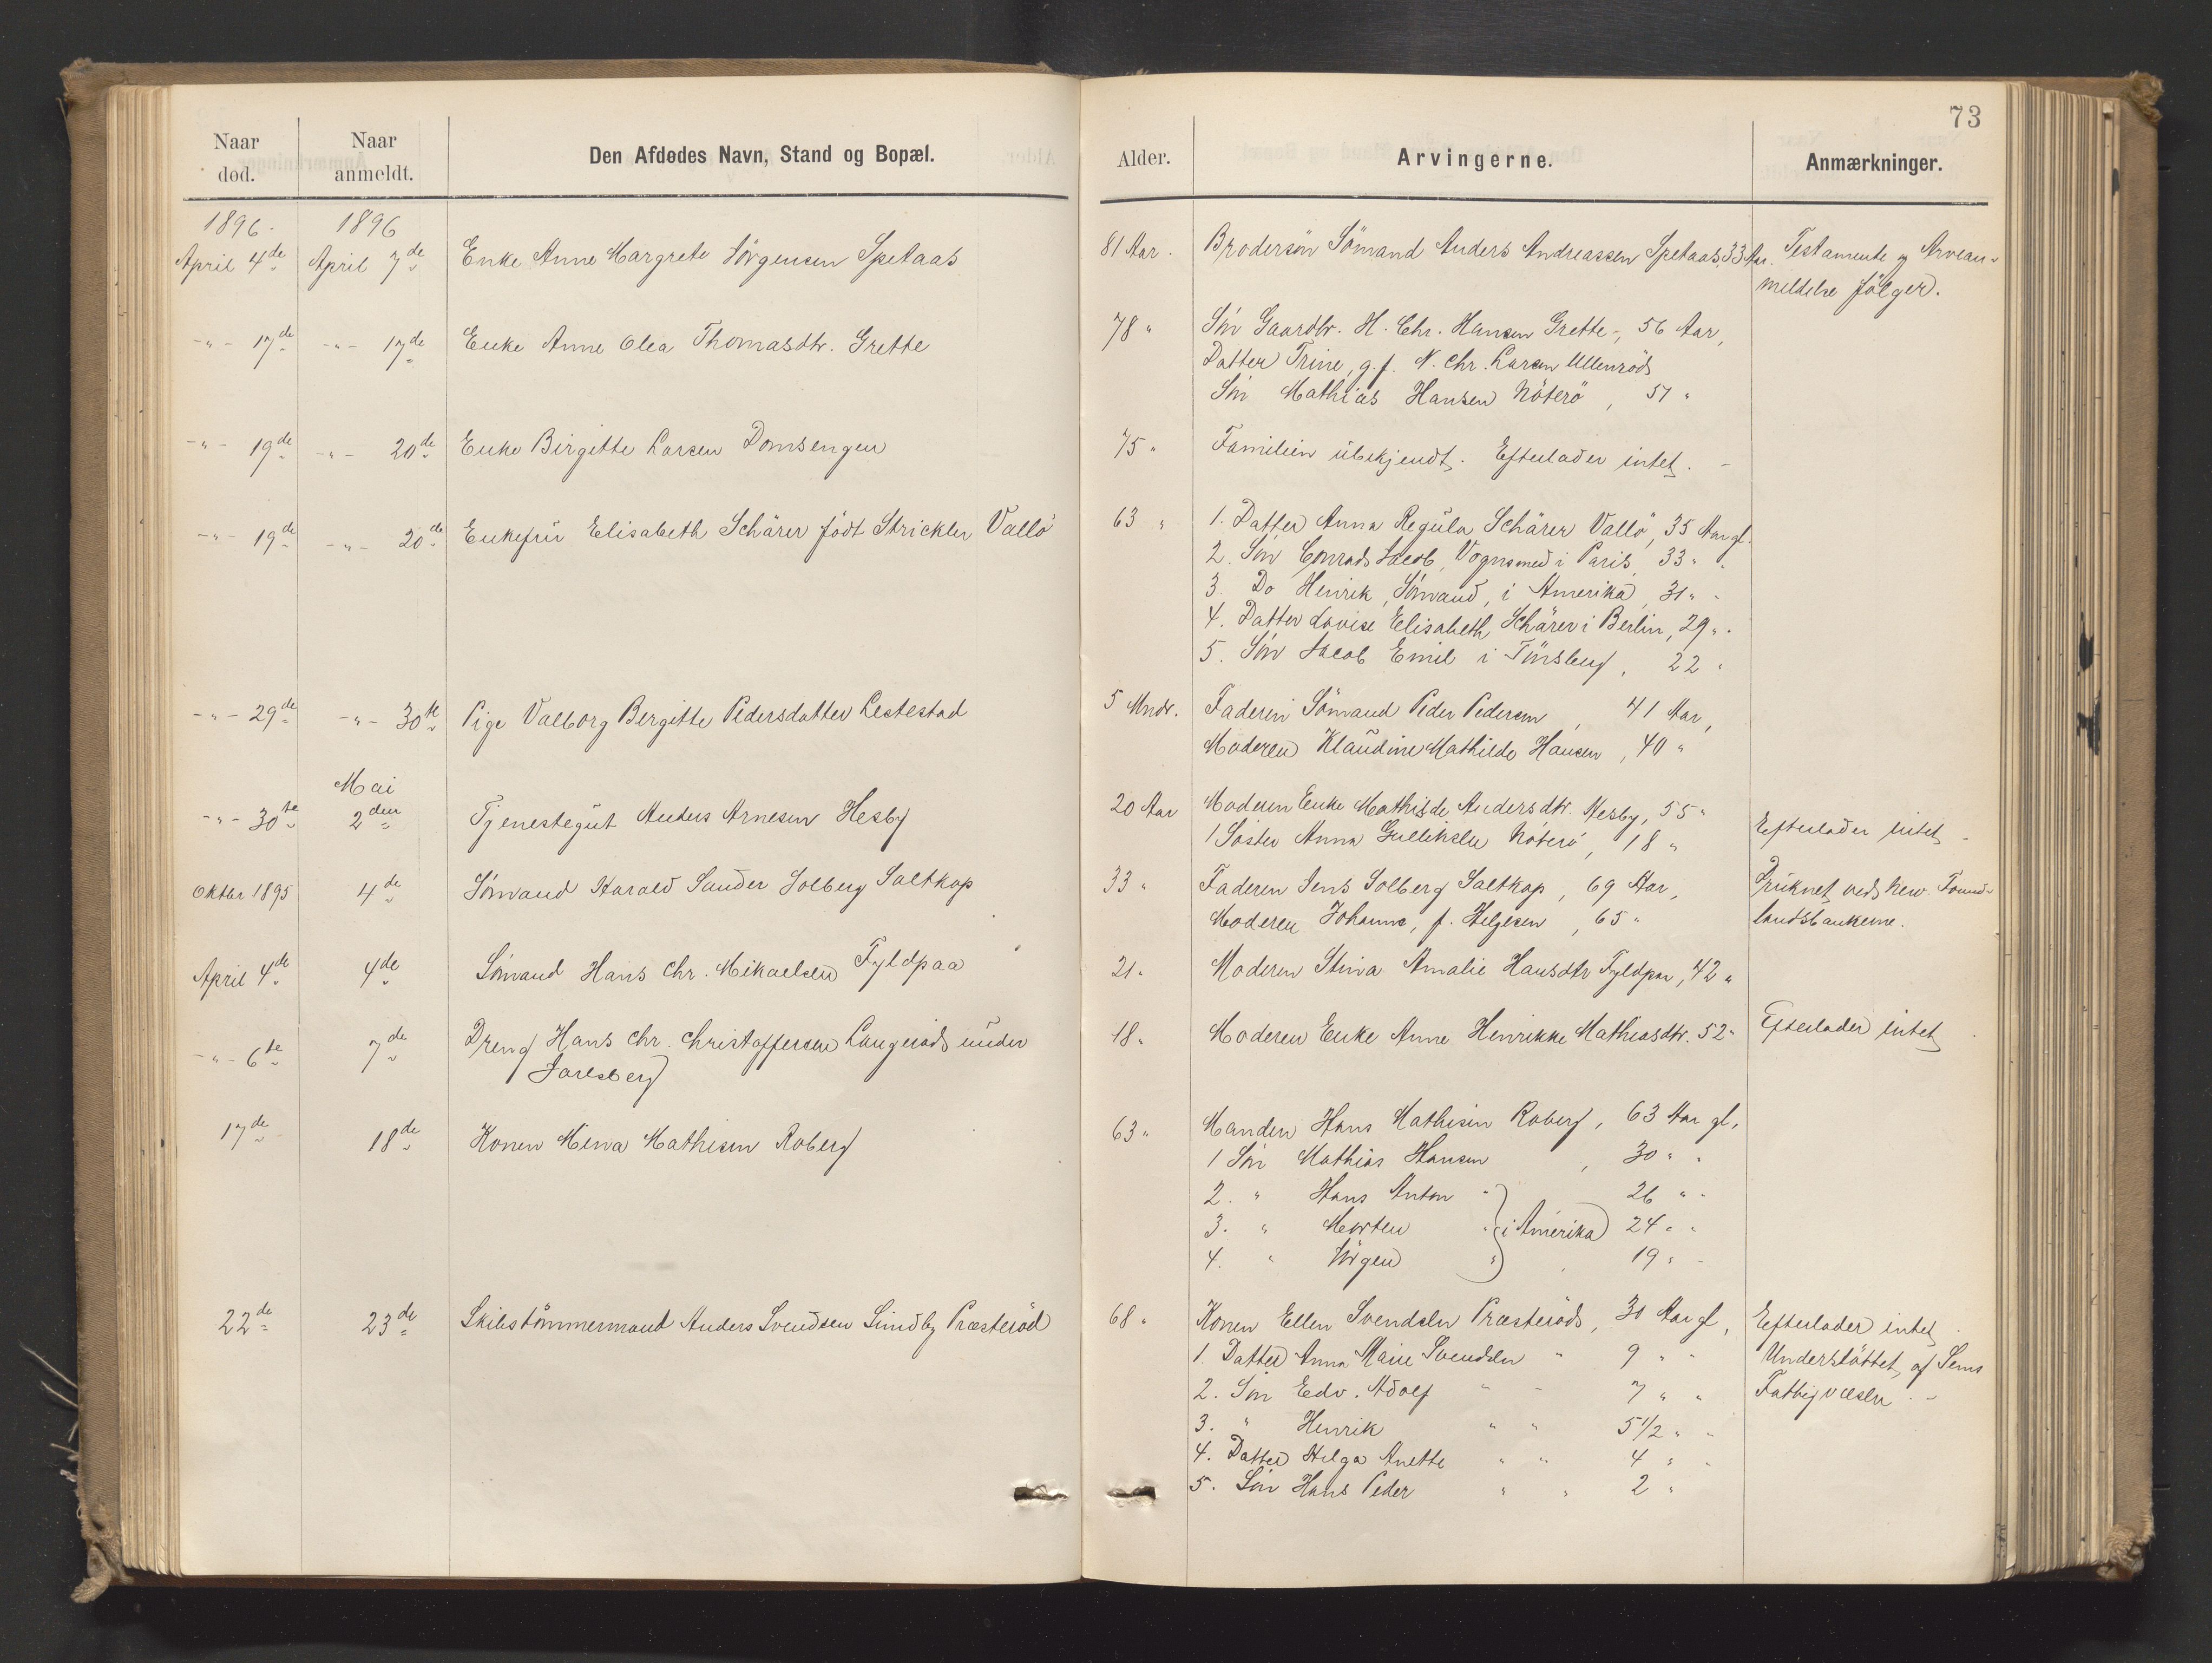 73
Naar død. Naar anmeldt. Den Afdødes Navn, Stand og Bopæl. Alder. Arvingerne. Anmærkninger.
1896. 1896
April 4de April 7de Enke Anne Margrete Jörgensen Spetaas 81 Aar. Brodersön Sömand Anders Andreassen Spetaas, 33 Aar. Testamente og Arvean-
meldelse fölger.
-"- 17de -"- 17de Enke Anne Olea Thomasdtr. Grette 78 " Sön Gaardbr. H. Chr. Hansen Grette, 56 Aar,
Datter Trine, g. f. N. Chr. Larsen Ullenröd
Sön Mathias Hansen Nöterö, 51 "
-"- 19de -"- 20de Enke Birgitte Larsen Domsengen 75 " Familien übekjendt. Efterlader intet. -
-"- 19de -"- 20de Enkefrü Elisabeth Schärer födt Strickler Vallö 63 " 1. Datter Anna Regüla Schärer Vallö, 35 Aar gl.
2. Sön Conrad Jacob, Vognsmed i Paris, 33 " "
3. Do Henrik, Sömand, i Amerika, 31 " "
4. Datter Lovise Elisabeth Schärer i Berlin, 29 " "
5. Sön Jacob Emil i Tönsberg, 22 "
-"- 29de -"- 30te Pige Valborg Bergitte Pedersdatter Lestestad 5 Mndr. Faderen Sömand Peder Pedersen, 41 Aar,
Moderen Klaudine Mathilde Hansen, 40 "
Mai
-"- 30te 2den Tjenestegüt Anders Arnesen Hesby 20 Aar Moderen Enke Mathilde Andersdtr. Hesby, 55 "
1 Söster Anna Gulliksen Nöterö, 18 " Efterlader intet -
Oktbr 1895 4de Sömand Harald Sander Solberg Saltkop 33 " Faderen Jens Solberg Saltkop, 69 Aar, Drüknet ved New-Found-
Moderen Johanne, f. Helgesen, 65 " landsbankerne.
April 4de 4de Sömand Hans Chr. Mikaelsen Fyldpaa 21 " Moderen Stina Amalie Hansdtr Fyldpaa, 42 "
-"- 6te 7de Dreng Hans Chr. Christoffersen Langeröd ünder 18 " Moderen Enke Anne Henrikke Mathiasdtr. 52 " Efterlader intet.
Jarlsberg
17de 18de Konen Mina Mathisen Roberg 63 " Manden Hans Mathisen Roberg, 63 Aar gl,
1 Sön Mathias Hansen, 30 " "
2. " Hans Anton " 26 " "
3. " Morten " i Amerika 24 " "
4. " Jörgen " 19 " "
22de 23de Skibstömmermand Anders Svendsen Sündby Præsteröd 68 " Konen Ellen Svendsen Præsteröd, 30 Aar gl, Efterlader intet.
1. Datter Anna Marie Svendsen " 9 " " Understöttet af Sems
2. Sön Edv. Adolf " " 7 " " Fattigvæsen. -
3. " Henrik " " 5 1/2 " "
4. Datter Helga Anette " " 4 " "
5. Sön Hans Peder " " 2 "